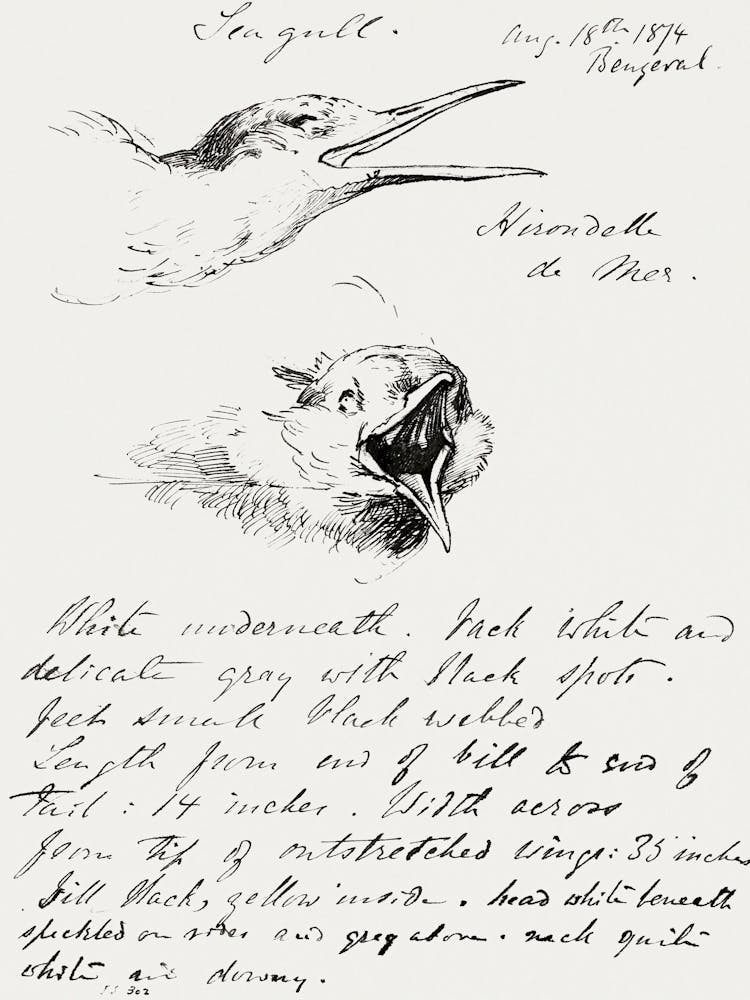 Sea gull.
Aug. 18th 1874
Benzeval.
Hirondelle
de Mer.
White underneath. Back white and
delicate gray with black spots.
feet small black webbed
Length from end of bill to end of
tail: 14 inches. Width across
from tip of outstretched wings: 35 inches
Bill black, yellow inside. head white beneath
speckled on sides and grey above. neck quite
white and downy.
S.S 302